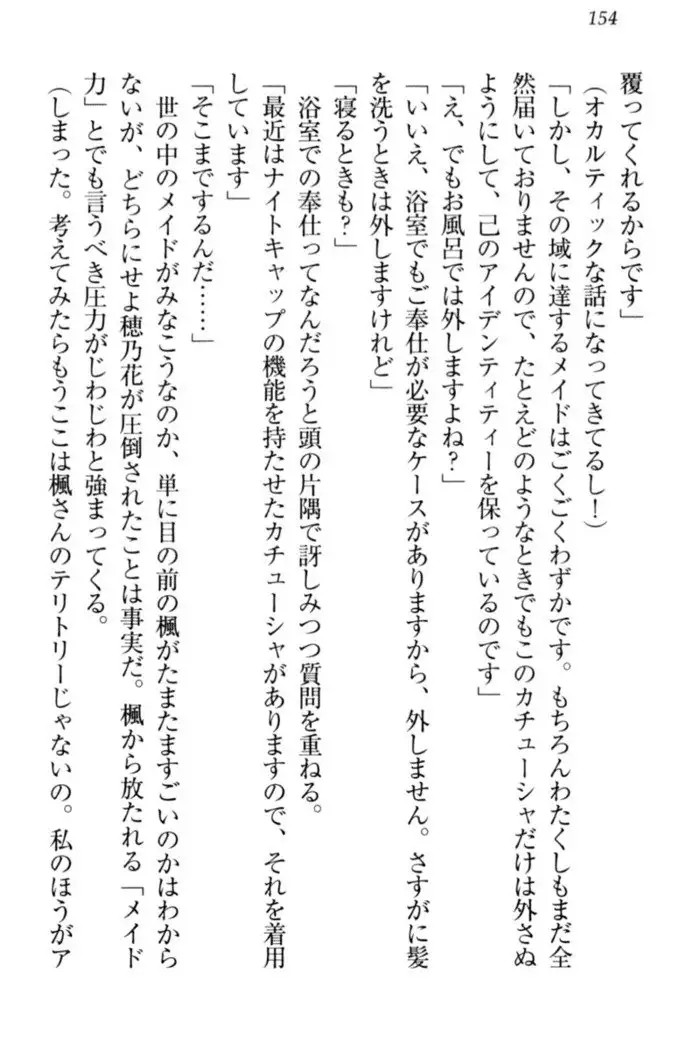 154
覆ってくれるからです」
（オカルティックな話になってきてるし！）
「しかし、その域に達するメイドはごくごくわずかです。もちろんわたくしもまだ全
然届いておりませんので、たとえどのようなときでもこのカチューシャだけは外さぬ
ようにして、己のアイデンティティーを保っているのです」
「え、でもお風呂では外しますよね？」
「いいえ、浴室でもご奉仕が必要なケースがありますから、外しません。さすがに髪
を洗うときは外しますけれど」
「寝るときも？」
浴室での奉仕ってなんだろうと頭の片隅で訝しみつつ質問を重ねる。
「最近はナイトキャップの機能を持たせたカチューシャがありますので、それを着用
しています」
「そこまでするんだ……」
世の中のメイドがみなこうなのか、単に目の前の楓がたまたますごいのかはわから
ないが、どちらにせよ穂乃花が圧倒されたことは事実だ。楓から放たれる「メイド
力」とでも言うべき圧力がじわじわと強まってくる。
（しまった。考えてみたらもうここは楓さんのテリトリーじゃないの。私のほうがア